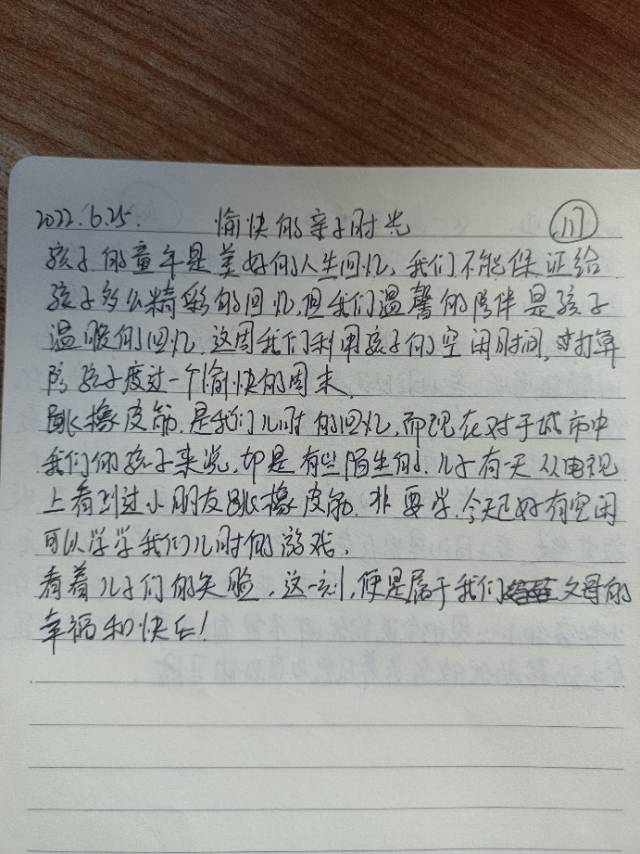 2022.6.25. 愉快的亲子时光 111
孩子的童年是美好的人生回忆,我们不能保证给
孩子多么精彩的回忆,但我们温馨的陪伴是孩子
温暖的回忆,这周我们利用孩子们空闲时间,打算
陪孩子度过一个愉快的周末.
跳橡皮筋,是我们儿时的回忆,而现在对于城市中
我们的孩子来说,却是有些陌生的,儿子有一天从电视
上看到过小朋友跳橡皮筋,非要学,今天正好有空闲
可以学学我们儿时的游戏.
看着儿子们的笑脸,这一刻,便是属于我们父母的
幸福和快乐!